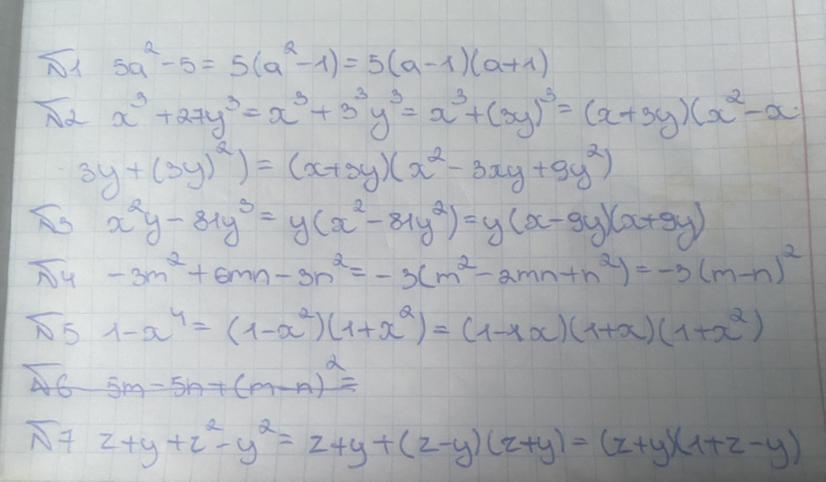 №1 5a² - 5 = 5(a² - 1) = 5(a - 1)(a + 1)
№2 x³ + 27y³ = x³ + 3³y³ = x³ + (3y)³ = (x + 3y)(x² - x·
·3y + (3y)²) = (x + 3y)(x² - 3xy + 9y²)
№3 x²y - 81y³ = y(x² - 81y²) = y(x - 9y)(x + 9y)
№4 -3m² + 6mn - 3n² = -3(m² - 2mn + n²) = -3(m - n)²
№5 1 - x⁴ = (1 - x²)(1 + x²) = (1 - x)(1 + x)(1 + x²)
№6 5m - 5n + (m - n)² =
№7 z + y + z² - y² = z + y + (z - y)(z + y) = (z + y)(1 + z - y)